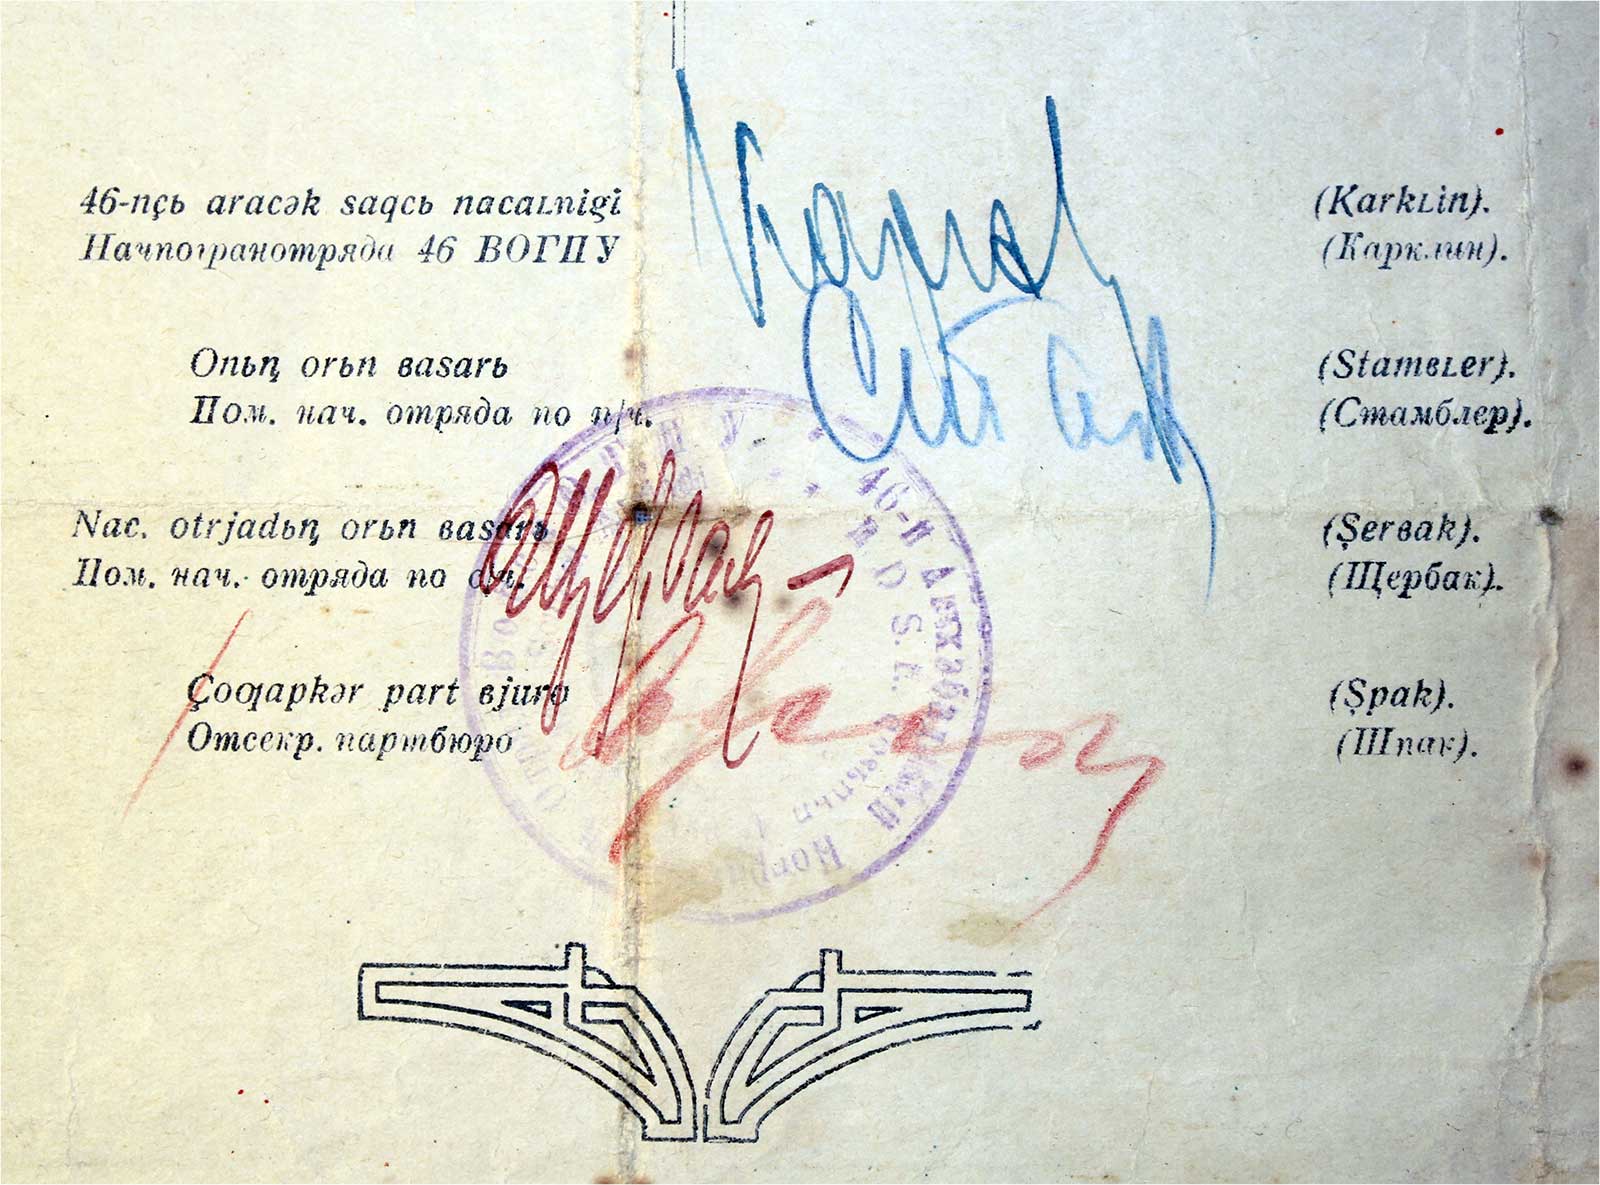 46-nçь aracək saqcь nacaʟnigi (Karkʟin).
Начпогранотряда 46 ВОГПУ (Карклин).
Onьꞑ orьn ʙasarь (Stamʙʟer).
Пом. нач. отряда по п/ч. (Стамблер).
Nac. otrjadьꞑ orьn ʙasarь (Şerʙak).
Пом. нач. отряда по (Щербак).
Çoƣapkər part ʙjuro (Şpak).
Отсекр. партбюро (Шпак).
46-й Ашхабадский